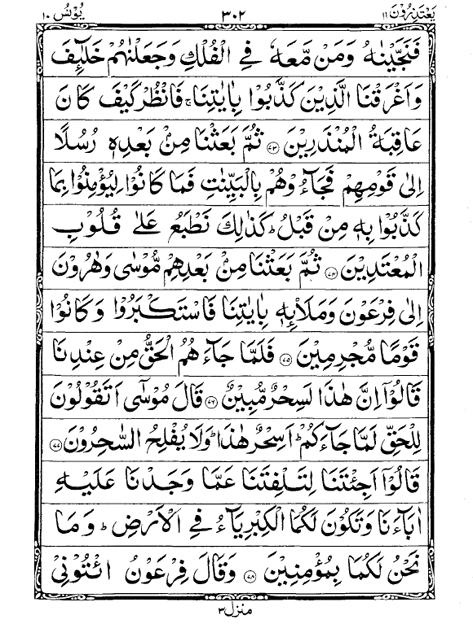 یعتذرون ۱۱ ۳۰۲ یونس ۱۰
فَنَجَّيْنٰهُ وَمَنْ مَّعَهٗ فِي الْفُلْكِ وَجَعَلْنٰهُمْ خَلٰٓئِفَ
وَاَغْرَقْنَا الَّذِيْنَ كَذَّبُوْا بِاٰيٰتِنَا ۚ فَانْظُرْ كَيْفَ كَانَ
عَاقِبَةُ الْمُنْذَرِيْنَ ﴿۷۳﴾ ثُمَّ بَعَثْنَا مِنْۢ بَعْدِهٖ رُسُلًا
اِلٰى قَوْمِهِمْ فَجَآءُوْهُمْ بِالْبَيِّنٰتِ فَمَا كَانُوْا لِيُؤْمِنُوْا بِمَا
كَذَّبُوْا بِهٖ مِنْ قَبْلُ ؕ كَذٰلِكَ نَطْبَعُ عَلٰى قُلُوْبِ
الْمُعْتَدِيْنَ ﴿۷۴﴾ ثُمَّ بَعَثْنَا مِنْۢ بَعْدِهِمْ مُّوْسٰى وَهٰرُوْنَ
اِلٰى فِرْعَوْنَ وَمَلَا۟ئِهٖ بِاٰيٰتِنَا فَاسْتَكْبَرُوْا وَكَانُوْا
قَوْمًا مُّجْرِمِيْنَ ﴿۷۵﴾ فَلَمَّا جَآءَهُمُ الْحَقُّ مِنْ عِنْدِنَا
قَالُوْۤا اِنَّ هٰذَا لَسِحْرٌ مُّبِيْنٌ ﴿۷۶﴾ قَالَ مُوْسٰۤى اَتَقُوْلُوْنَ
لِلْحَقِّ لَمَّا جَآءَكُمْ ؕ اَسِحْرٌ هٰذَا ؕ وَلَا يُفْلِحُ السّٰحِرُوْنَ ﴿۷۷﴾
قَالُوْۤا اَجِئْتَنَا لِتَلْفِتَنَا عَمَّا وَجَدْنَا عَلَيْهِ
اٰبَآءَنَا وَتَكُوْنَ لَكُمَا الْكِبْرِيَآءُ فِي الْاَرْضِ ؕ وَمَا
نَحْنُ لَكُمَا بِمُؤْمِنِيْنَ ﴿۷۸﴾ وَقَالَ فِرْعَوْنُ ائْتُوْنِيْ
منزل ۳